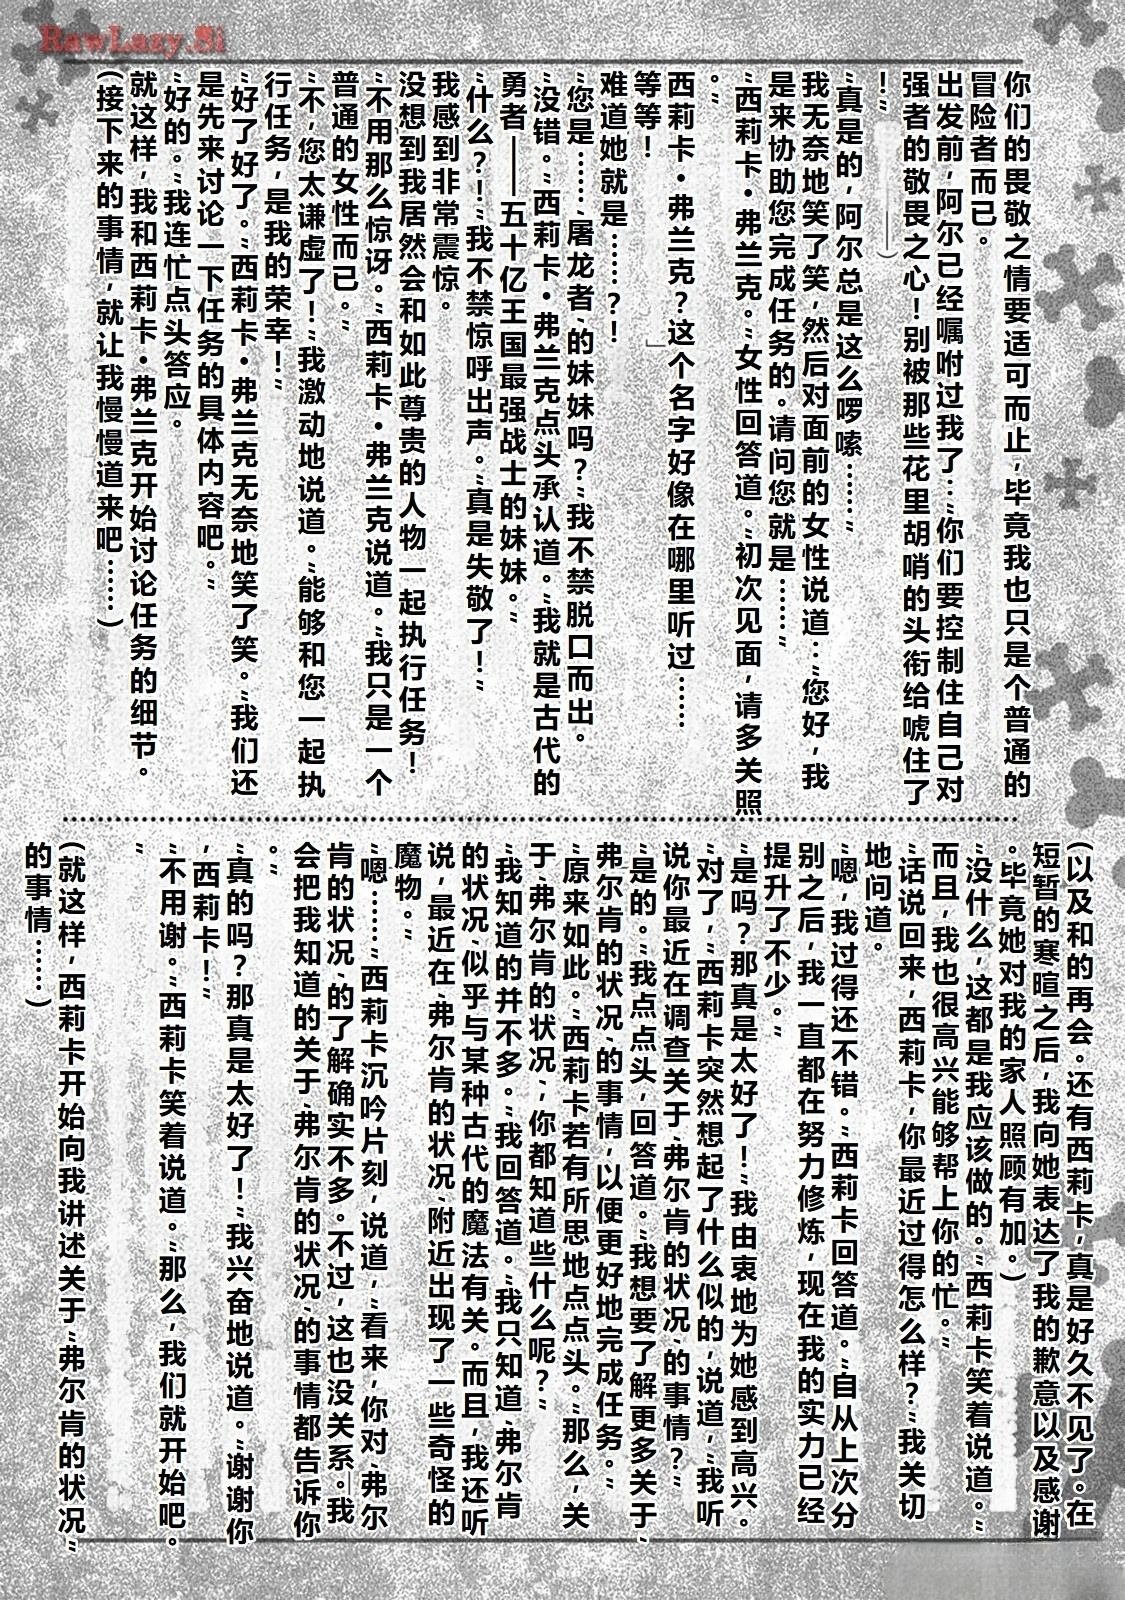 RawLazy.Si
你们的畏敬之情要适可而止,毕竟我也只是个普通的
冒险者而已。
出发前,阿尔已经嘱咐过我了:"你们要控制住自己对
强者的敬畏之心!别被那些花里胡哨的头衔给唬住了
!"
——)
"真是的,阿尔总是这么啰嗦……"
我无奈地笑了笑,然后对面前的女性说道:"您好,我
是来协助您完成任务的。请问您就是……"
"西莉卡·弗兰克。"女性回答道。"初次见面,请多关照
。"
西莉卡·弗兰克?这个名字好像在哪里听过……
等等!
难道她就是……?!
"您是……'屠龙者'的妹妹吗?"我不禁脱口而出。
"没错。"西莉卡·弗兰克点头承认道。"我就是古代的
勇者——五十亿王国最强战士的妹妹。"
"什么?!"我不禁惊呼出声。"真是失敬了!"
我感到非常震惊。
没想到我居然会和如此尊贵的人物一起执行任务!
"不用那么惊讶。"西莉卡·弗兰克说道。"我只是一个
普通的女性而已。"
"不,您太谦虚了!"我激动地说道。"能够和您一起执
行任务,是我的荣幸!"
"好了好了。"西莉卡·弗兰克无奈地笑了笑。"我们还
是先来讨论一下任务的具体内容吧。"
"好的。"我连忙点头答应。
就这样,我和西莉卡·弗兰克开始讨论任务的细节。
(接下来的事情,就让我慢慢道来吧……)
(以及和的再会。还有西莉卡,真是好久不见了。在
短暂的寒暄之后,我向她表达了我的歉意以及感谢
。毕竟她对我的家人照顾有加。)
"没什么,这都是我应该做的。"西莉卡笑着说道。"
而且,我也很高兴能够帮上你的忙。"
"话说回来,西莉卡,你最近过得怎么样?"我关切
地问道。
"嗯,我过得还不错。"西莉卡回答道。"自从上次分
别之后,我一直都在努力修炼,现在我的实力已经
提升了不少。"
"是吗?那真是太好了!"我由衷地为她感到高兴。
"对了,"西莉卡突然想起了什么似的,说道,"我听
说你最近在调查关于'弗尔肯的状况'的事情?"
"是的。"我点点头,回答道。"我想要了解更多关于"
弗尔肯的状况'的事情,以便更好地完成任务。"
"原来如此。"西莉卡若有所思地点点头。"那么,关
于'弗尔肯的状况',你都知道些什么呢?"
"我知道的并不多。"我回答道。"我只知道'弗尔肯
的状况'似乎与某种古代的魔法有关。而且,我还听
说,最近在'弗尔肯的状况'附近出现了一些奇怪的
魔物。"
"嗯……"西莉卡沉吟片刻,说道,"看来,你对'弗尔
肯的状况'的了解确实不多。不过,这也没关系。我
会把我知道的关于'弗尔肯的状况'的事情都告诉你
。"
"真的吗?那真是太好了!"我兴奋地说道。"谢谢你
,西莉卡!"
"不用谢。"西莉卡笑着说道。"那么,我们就开始吧。
"
(就这样,西莉卡开始向我讲述关于"弗尔肯的状况"
的事情……)